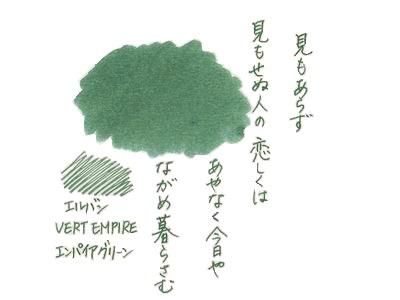 見もあらず
見もせぬ人の恋しくは
あやなく今日や
ながめ暮らさむ
エルバン
VERT EMPIRE
エンパイアグリーン